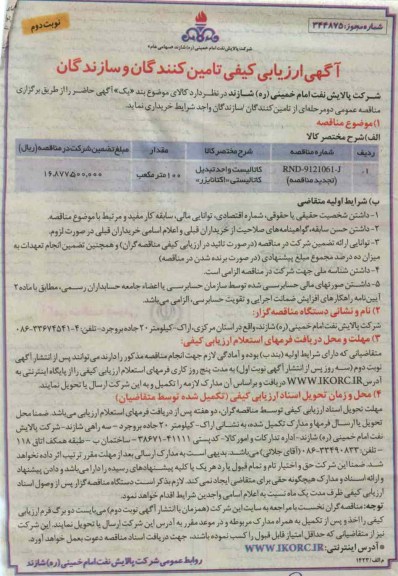 شماره مجوز: ۳۴۴۸۷۵
نوبت دوم
شرکت پالایش نفت امام خمینی (ره) شازند (سهامی عام)
آگهی ارزیابی کیفی تامین کنندگان و سازندگان
شرکت پالایش نفت امام خمینی (ره) شازند در نظر دارد کالای موضوع بند «یک» آگهی حاضر را از طریق برگزاری
مناقصه عمومی دو مرحله‌ای از تامین کنندگان /سازندگان واجد شرایط خریداری نماید.
۱) موضوع مناقصه
الف) شرح مختصر کالا
ردیف شماره مناقصه شرح مختصر کالا مقدار مبلغ تضمین شرکت در مناقصه (ریال)
۱. RND-9121061-J (تجدید مناقصه) کاتالیست واحد تبدیل کاتالیستی «اکتانایزر» ۱۰۰ متر مکعب ۱۶،۸۷۷،۵۰۰،۰۰۰
ب) شرایط اولیه متقاضی
۱- داشتن شخصیت حقیقی یا حقوقی، شماره اقتصادی، توانایی مالی، سابقه کار مفید و مرتبط با موضوع مناقصه.
۲- داشتن حسن سابقه، گواهینامه‌های صلاحیت از خریداران قبلی و اعلام اسامی خریداران قبلی در صورت لزوم.
۳- توانایی ارائه تضمین شرکت در مناقصه (در صورت تائید در ارزیابی کیفی مناقصه گران) و همچنین تضمین انجام تعهدات به
میزان ده درصد مجموع مبلغ پیشنهادی (در صورت برنده شدن در مناقصه)
۴- داشتن شناسه ملی جهت شرکت در مناقصه الزامی است.
۵- داشتن صورتهای مالی حسابرسی شده توسط سازمان حسابرسی یا اعضاء جامعه حسابداران رسمی، مطابق با ماده ۲
آیین‌نامه راهکارهای افزایش ضمانت اجرایی و تقویت حسابرسی، الزامی می‌باشد.
۲) نام و نشانی دستگاه مناقصه گزار:
شرکت پالایش نفت امام خمینی (ره) شازند، واقع در استان مرکزی، اراک - کیلومتر ۲۰ جاده بروجرد - تلفن: ۴-۳۳۶۷۴۵۴۱-۰۸۶
۳) مهلت و محل دریافت فرمهای استعلام ارزیابی کیفی:
متقاضیانی که دارای شرایط اولیه (بند ب) بوده و آمادگی لازم جهت انجام مناقصه مذکور را دارند می توانند پس از انتشار آگهی
نوبت دوم (سه روز پس از انتشار آگهی نوبت اول) به مدت پنج روز کاری فرمهای استعلام ارزیابی کیفی را از پایگاه اینترنتی به
آدرس WWW.IKORC.IR دریافت و بر اساس آن مدارک لازمه را تکمیل و به این شرکت ارسال یا تحویل نمایند.
۴) محل و زمان تحویل اسناد ارزیابی کیفی (تکمیل شده توسط متقاضیان)
مهلت تحویل اسناد ارزیابی کیفی توسط مناقصه گران، دو هفته پس از دریافت فرمهای استعلام ارزیابی می‌باشد. ضمنا محل
تحویل یا ارسال فرمها و مدارک تکمیل شده، به نشانی اراک - کیلومتر ۲۰ جاده بروجرد - سه راهی شازند - شرکت پالایش
نفت امام خمینی (ره) شازند - اداره تدارکات و امور کالا - کدپستی ۴۱۱۱۱-۳۸۶۷۱ - ساختمان ب - طبقه همکف اتاق ۱۱۸
- تلفن: ۳۳۴۹۰۸۳۳-۰۸۶ (آقای جلائی) می‌باشند. بدیهی است به مدارک ارسالی بعد از مهلت مقرر ترتیب اثر داده نخواهد
شد. ضمنا این شرکت حق و اختیار تام و تمام قبول یا رد هر یک یا کلیه پیشنهادهای رسیده را دارا می‌باشد و دادن پیشنهاد
و ارائه اسناد و مدارک هیچگونه حقی برای متقاضی ایجاد نمی کند. لازم بذکر است دستگاه مناقصه گزار پس از وصول اسناد
ارزیابی کیفی ظرف مدت یک ماه نسبت به اعلام اسامی واجدین شرایط اقدام خواهد نمود.
توجه: مناقصه گران نخست با مراجعه به سایت این شرکت (همزمان با انتشار آگهی نوبت دوم) می‌بایست دو برگ فرم ارزیابی
کیفی را اخذ و پس از تکمیل به همراه مدارک مربوطه و در موعد مقرر به آدرس این شرکت ارسال یا تحویل نمایند. این شرکت
نیز از متقاضیانی که حداقل امتیاز قابل قبول را کسب نموده باشند، جهت دریافت اسناد مناقصه دعوت بعمل خواهد آورد.
* آدرس اینترنتی: WWW.IKORC.IR
م الف: ۱۲۲۴
روابط عمومی شرکت پالایش نفت امام خمینی (ره) شازند